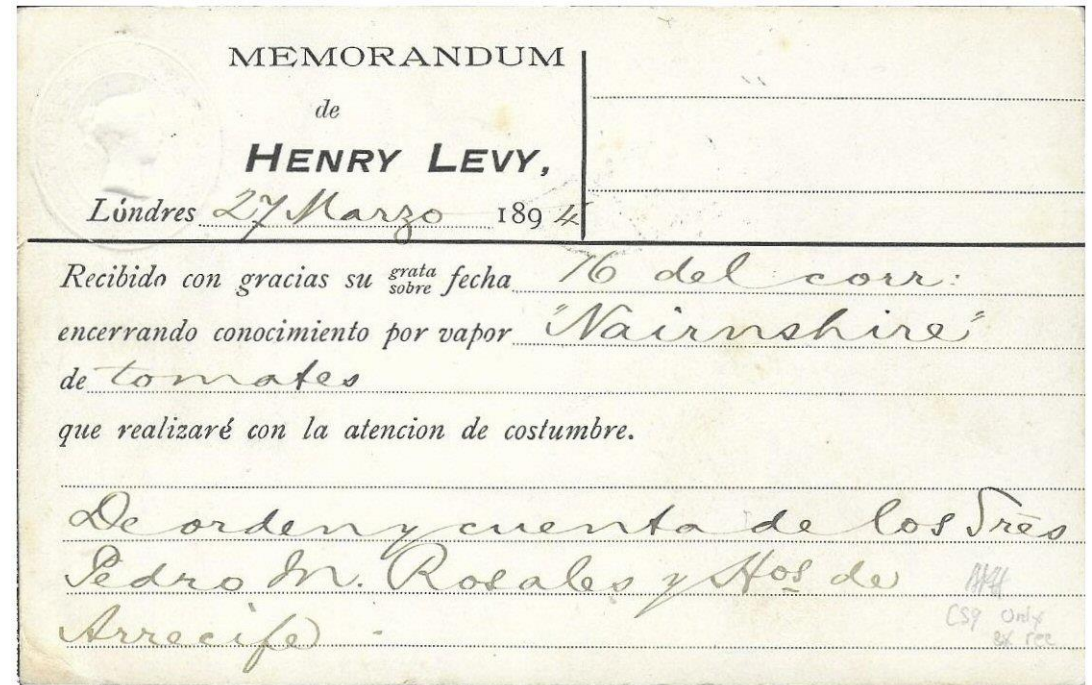 MEMORANDUM
de
HENRY LEVY,
Lóndres 27 Marzo 1894
Recibido con gracias su grata sobre fecha 16 del corr:
encerrando conocimiento por vapor "Nairnshire"
de tomates
que realizaré con la atencion de costumbre.
De orden y cuenta de los Sres
Pedro M. Rosales y Hos de
Arrecife.
CS9 Only